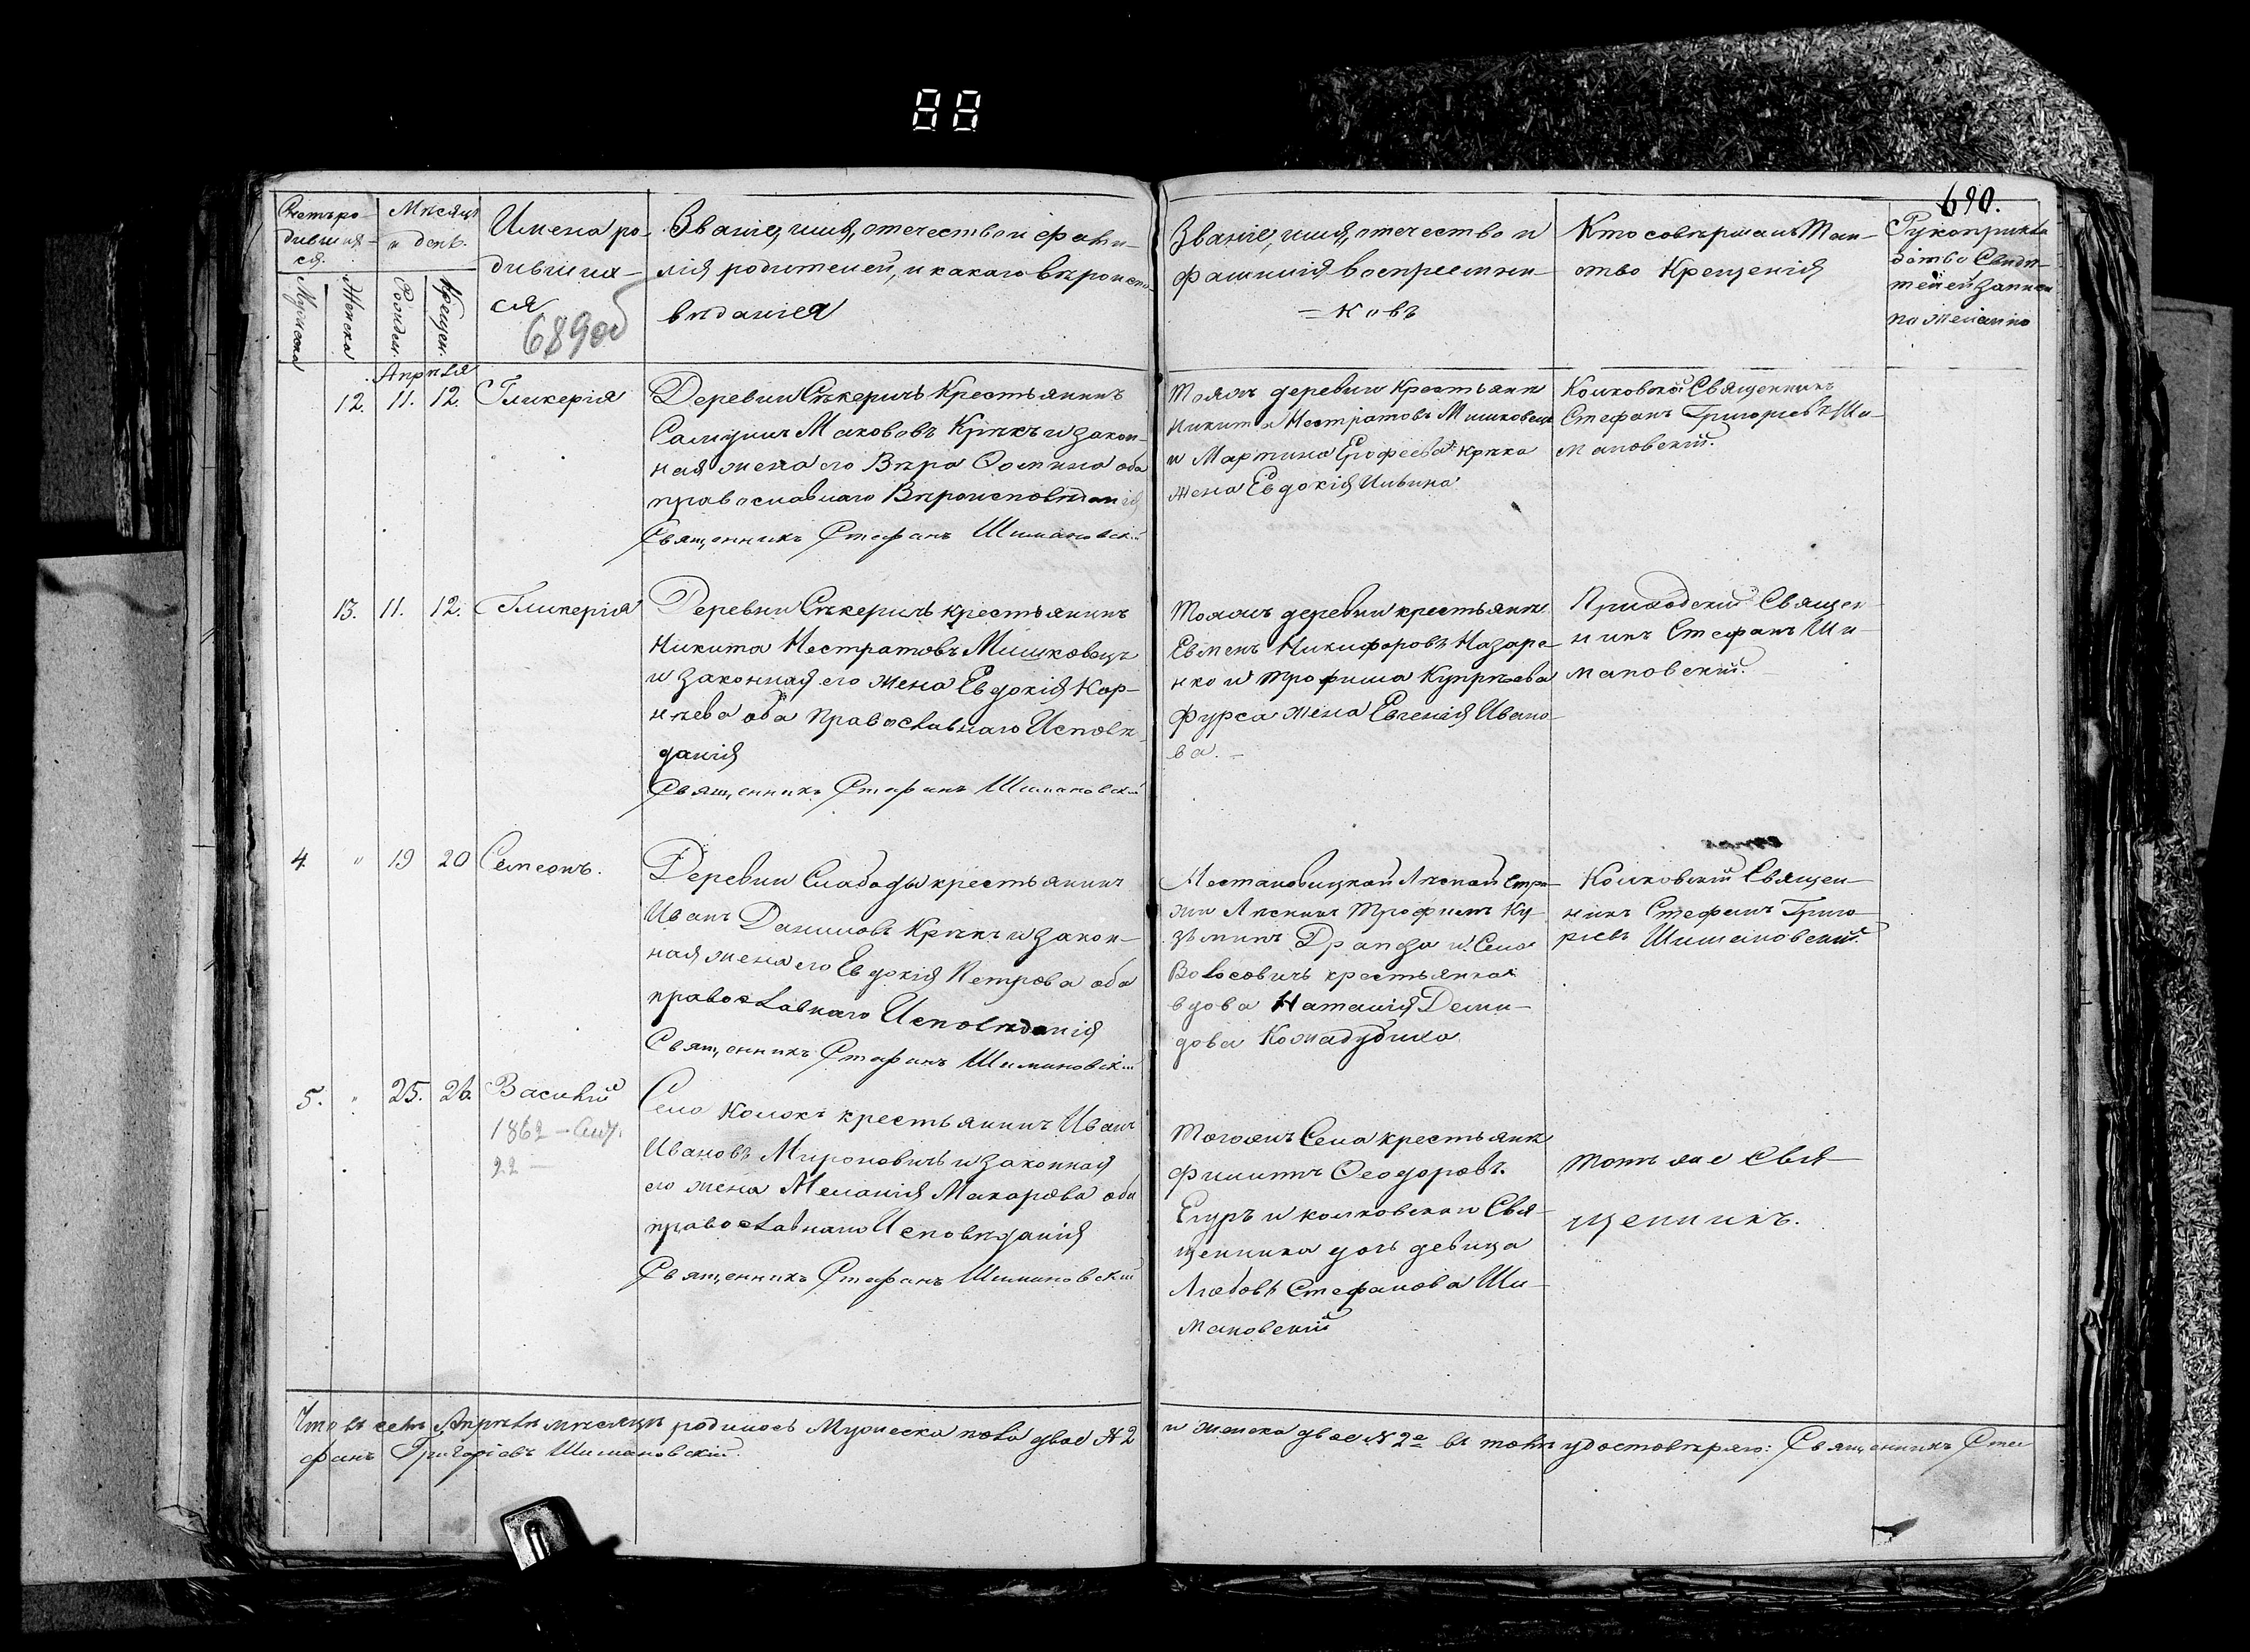 88
690.
Счетъ ро-
дивших-
ся.
Мѣсяцъ
и день.
Мужеска
Женска
Рожден.
Крещен.
Имена ро-
дивших-
ся
689об
Званіе, имя, отечество и фами-
лія родителей, и какаго вѣроиспо-
вѣданія
Званіе, имя, отечество и
фамилія воспреемни-
=ковъ
Кто совершалъ Таи-
нство Крещенія
Рукоприкла
дство Свидѣ-
телей записи
по желанію
Апрѣля
12. 11. 12. Гликерія
Деревни Секеричъ Крестьянинъ
Маковъ Крѣкъ и закон-
ная жена его Вѣра Фомина оба
православнаго Вѣроисповѣданія
Священникъ Стефанъ Шимановскій
Тояжъ деревни Крестьянин
Никита Нестратовъ Мишковецъ
и Мартина Ерофеева Крѣка
жена Евдокія Ильина
Колковскій Священникъ
Стефанъ Григорьевъ Ши-
мановскій.
13. 11. 12. Гликерія
Деревни Секеричъ крестьянинъ
Никита Нестратовъ Мишковецъ
и законная его жена Евдокія Кор-
нѣева оба Православнаго Исповѣ-
данія
Священникъ Стефанъ Шимановскій
Тояжъ деревни крестьянин
Евменъ Никифоровъ Назаре-
нко и Трофима Купрѣева
Фурса жена Евгенія Ивано-
ва. –
Приходскій Священ-
никъ Стефанъ Ши-
мановскій.
4 " 19 20 Семеонъ.
Деревни Слабады крестьянинъ
Иванъ Даниловъ Крѣкъ и закон-
ная жена его Евдокія Петрова оба
православнаго Исповѣданія
Священникъ Стефанъ Шимановскій
Лѣсной Стра-
жи Трофимъ Ку-
зьминъ Драпеза и Села
Волосовичъ крестьянка
вдова Наталія Деми-
дова
Колковскій Священ-
никъ Стефанъ Григо-
рьевъ Шимановскій.
5. " 25. 26. Василій
1862 –
22 –
Села Колокъ крестьянинъ Иванъ
Ивановъ Мироновичъ и законная
его жена Меланія Макарова оба
православнаго Исповѣданія
Священникъ Стефанъ Шимановскій
Тогожъ Села крестьянин
Филипъ Феодоровъ
Егуръ и колковскаго Свя-
щенника дочь девица
Любовь Стефанова Ши-
мановскій
Тотъ же Свя-
щенникъ.
Что въ семъ Апрѣлѣ мѣсяцѣ родилось Мужеска пола двое № 2 и женска двое № 2е въ томъ удостовѣряю: Священникъ Сте
фанъ Григоріевъ Шимановскій.